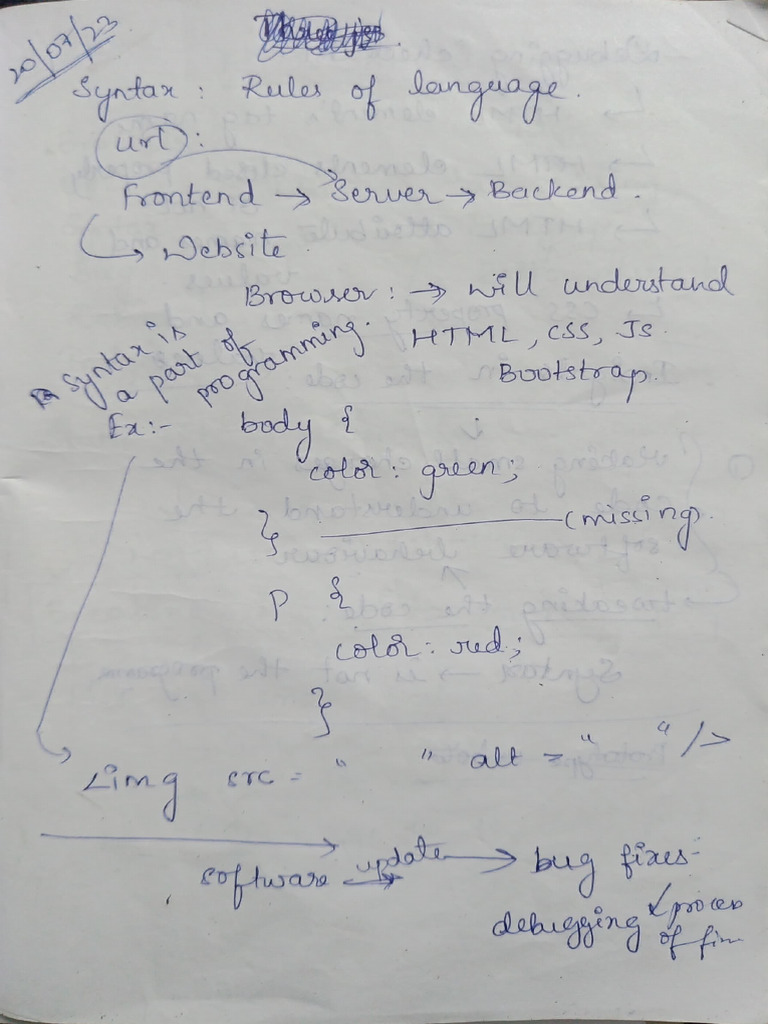 20/07/23
Syntax : Rules of language.
url :
Frontend → Server → Backend.
↳ Website
Browser : → will understand
HTML, CSS, Js.
Bootstrap.
Syntax is
a part of
programming.
Ex:- body {
color: green;
} (missing.
p {
color: red;
}
<img src = " " alt = " " />
software update → bug fixes-
debugging
of